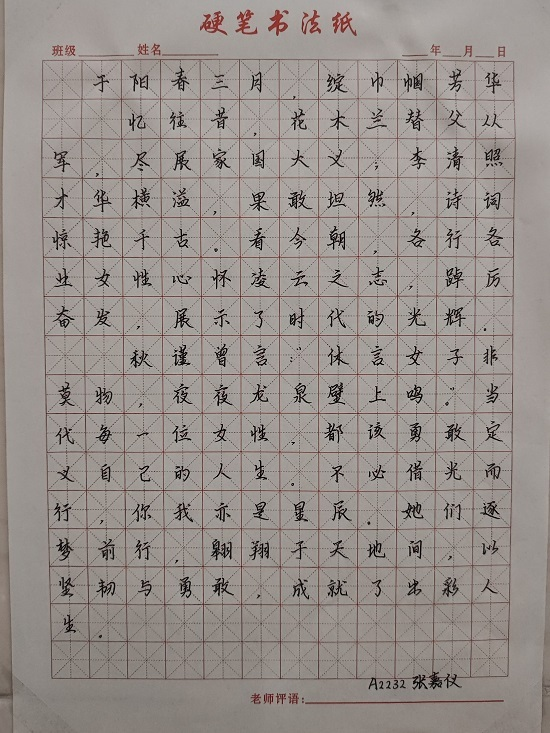 硬笔书法纸
班级 姓名 年 月 日
于阳春三月，绽巾帼芳华
忆往昔，花木兰替父从
军，尽展家国大义；李清照
才华横溢，果敢坦然，诗词
惊艳千古。看今朝，各行各
业女性心怀凌云之志，踔厉
奋发，展示了时代的光辉。
秋谨曾言：“休言女子非
莫物，夜夜龙泉壁上鸣”。当
代每一位女性，都该勇敢定
义自己的人生。不必借光而
行，你我亦是星辰。她们逐
梦前行，翱翔于天地间，以
坚韧与勇敢，成就了出彩人
生。
A2232 张嘉仪
老师评语：